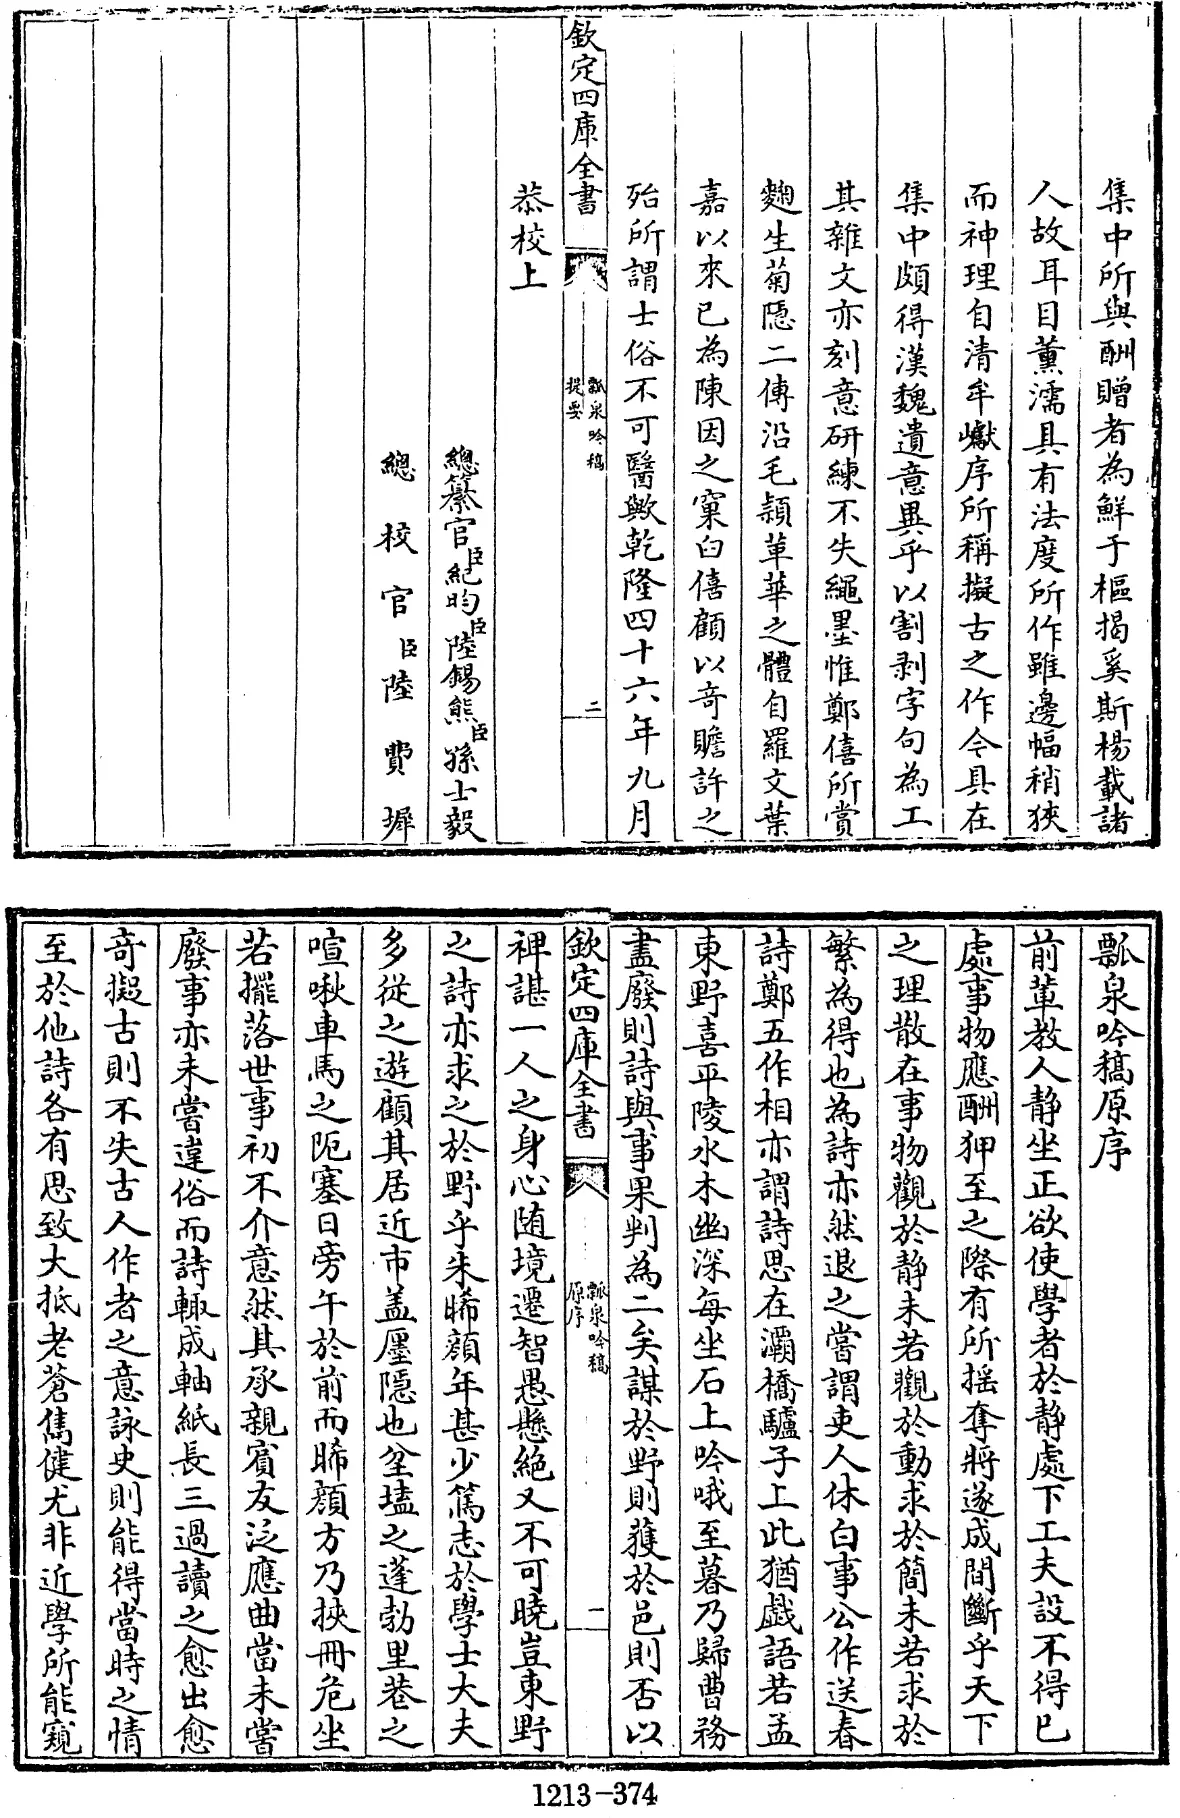 集中所與酬贈者為鮮于樞揭奚斯楊載諸
人故耳目薰濡具有法度所作雖邊幅稍狹
而神理自清牟巘序所稱擬古之作今具在
集中頗得漢魏遺意異乎以割剥字句為工
其雜文亦刻意研練不失繩墨惟鄭僖所賞
麴生菊隱二傳沿毛頴革華之體自羅文葉
嘉以來已為陳因之窠臼僖顧以竒贍許之
殆所謂士俗不可醫歟乾隆四十六年九月
欽定四庫全書
瓢泉吟稿
提要
二
恭校上
總纂官臣紀昀臣陸錫熊臣孫士毅
總校官臣陸費墀
瓢泉吟稿原序
前輩教人静坐正欲使學者於静處下工夫設不得已
處事物應酬狎至之際有所摇奪將遂成間斷乎天下
之理散在事物觀於静未若觀於動求於簡未若求於
繁為得也為詩亦然退之嘗謂吏人休白事公作送春
詩鄭五作相亦謂詩思在灞橋驢子上此猶戯語若孟
東野喜平陵水木幽深每坐石上吟哦至暮乃歸曹務
盡廢則詩與事果判為二矣謀於野則獲於邑則否以
欽定四庫全書
瓢泉吟稿
原序
一
裨諶一人之身心随境遷智愚懸絶又不可曉豈東野
之詩亦求之於野乎朱晞顔年甚少篤志於學士大夫
多從之遊顧其居近市盖㕓隠也坌壒之蓬勃里巷之
喧啾車馬之阨塞日旁午於前而晞顔方乃挾冊危坐
若擺落世事初不介意然其承親賓友泛應曲當未嘗
廢事亦未嘗違俗而詩輙成軸紙長三過讀之愈出愈
竒擬古則不失古人作者之意詠史則能得當時之情
至於他詩各有思致大抵老蒼雋健尤非近學所能窺
1213-374